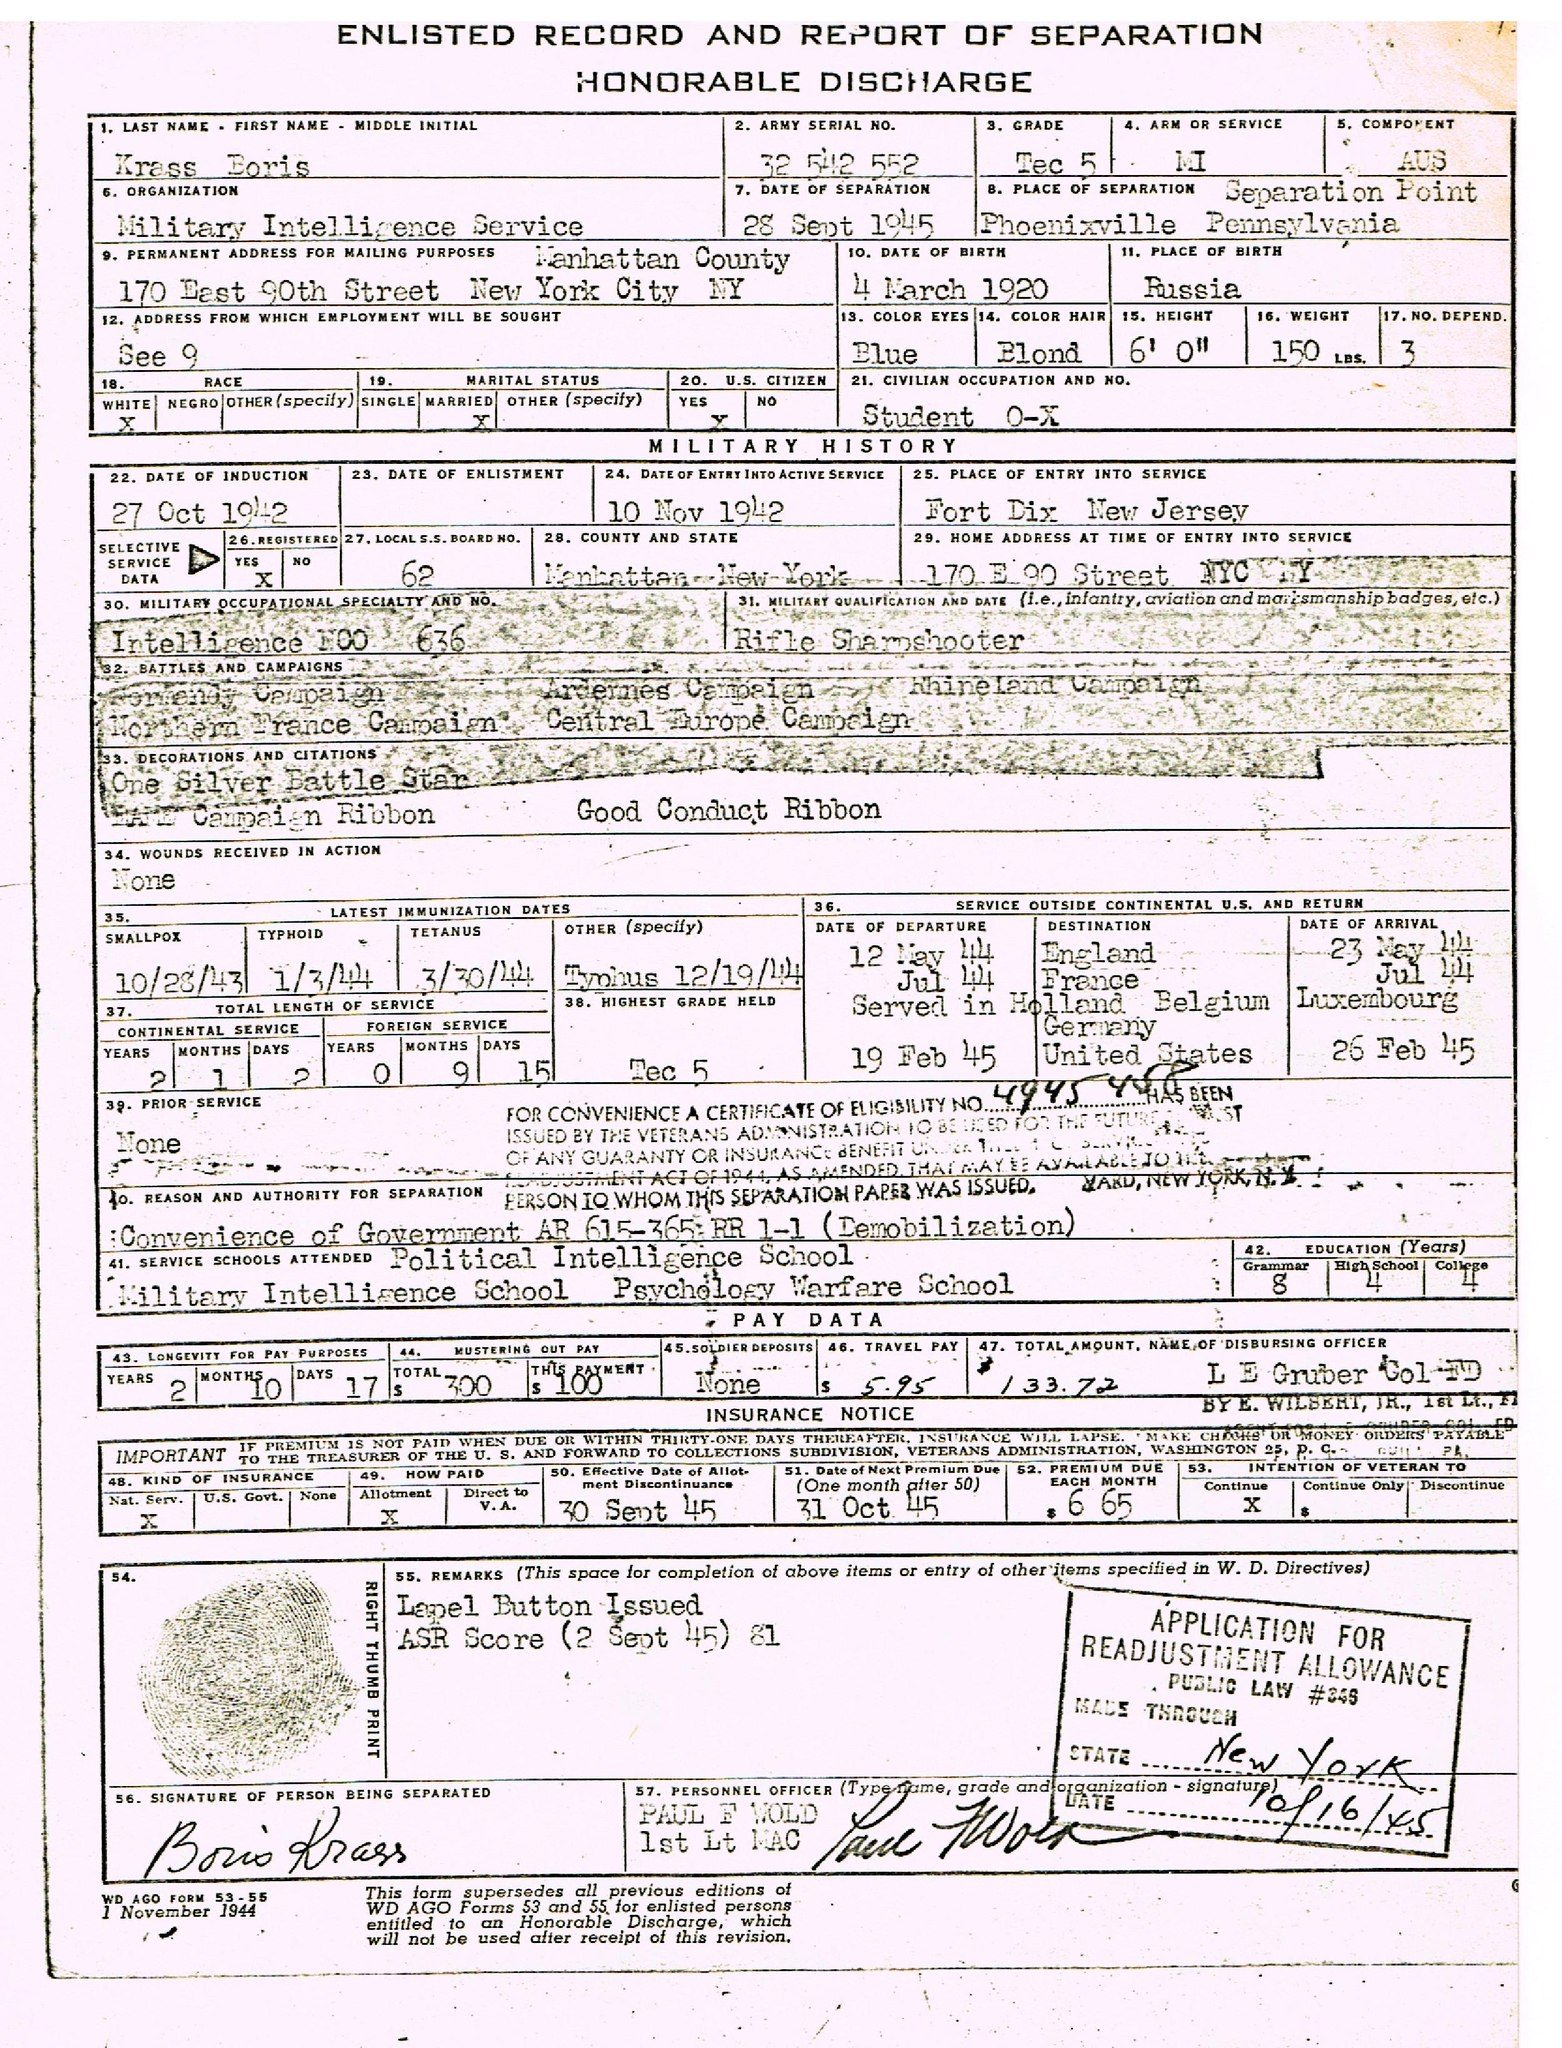 ENLISTED RECORD AND REPORT OF SEPARATION
HONORABLE DISCHARGE
1. LAST NAME - FIRST NAME - MIDDLE INITIAL
Krass Boris
2. ARMY SERIAL NO.
32 542 552
3. GRADE
Tec 5
4. ARM OR SERVICE
MI
5. COMPONENT
AUS
6. ORGANIZATION
Military Intelligence Service
7. DATE OF SEPARATION
28 Sept 1945
8. PLACE OF SEPARATION Separation Point
Phoenixville Pennsylvania
9. PERMANENT ADDRESS FOR MAILING PURPOSES Manhattan County
170 East 90th Street New York City NY
10. DATE OF BIRTH
4 March 1920
11. PLACE OF BIRTH
Russia
12. ADDRESS FROM WHICH EMPLOYMENT WILL BE SOUGHT
See 9
13. COLOR EYES
Blue
14. COLOR HAIR
Blond
15. HEIGHT
6' 0"
16. WEIGHT
150 LBS.
17. NO. DEPEND.
3
18. RACE
WHITE NEGRO OTHER (specify)
X
19. MARITAL STATUS
SINGLE MARRIED OTHER (specify)
X
20. U.S. CITIZEN
YES NO
X
21. CIVILIAN OCCUPATION AND NO.
Student O-X
MILITARY HISTORY
22. DATE OF INDUCTION
27 Oct 1942
23. DATE OF ENLISTMENT
24. DATE OF ENTRY INTO ACTIVE SERVICE
10 Nov 1942
25. PLACE OF ENTRY INTO SERVICE
Fort Dix New Jersey
SELECTIVE
SERVICE
DATA
26. REGISTERED
YES NO
X
27. LOCAL S.S. BOARD NO.
62
28. COUNTY AND STATE
Manhattan New York
29. HOME ADDRESS AT TIME OF ENTRY INTO SERVICE
170 E 90 Street NYC NY
30. MILITARY OCCUPATIONAL SPECIALTY AND NO.
Intelligence NCO 636
31. MILITARY QUALIFICATION AND DATE (i.e., infantry, aviation and marksmanship badges, etc.)
Rifle Sharpshooter
32. BATTLES AND CAMPAIGNS
Normandy Campaign Ardennes Campaign Rhineland Campaign
Northern France Campaign Central Europe Campaign
33. DECORATIONS AND CITATIONS
One Silver Battle Star
EAME Campaign Ribbon Good Conduct Ribbon
34. WOUNDS RECEIVED IN ACTION
None
35. LATEST IMMUNIZATION DATES
SMALLPOX TYPHOID TETANUS OTHER (specify)
10/28/43 1/3/44 3/30/44 Typhus 12/19/44
36. SERVICE OUTSIDE CONTINENTAL U.S. AND RETURN
DATE OF DEPARTURE DESTINATION DATE OF ARRIVAL
12 May 44 England 23 May 44
Jul 44 France Jul 44
Served in Holland Belgium Luxembourg
Germany
19 Feb 45 United States 26 Feb 45
37. TOTAL LENGTH OF SERVICE
CONTINENTAL SERVICE FOREIGN SERVICE
YEARS MONTHS DAYS YEARS MONTHS DAYS
2 1 2 0 9 15
38. HIGHEST GRADE HELD
Tec 5
39. PRIOR SERVICE
None
FOR CONVENIENCE A CERTIFICATE OF ELIGIBILITY NO. 4945 458 HAS BEEN
ISSUED BY THE VETERANS ADMINISTRATION TO BE USED FOR THE FUTURE
OF ANY GUARANTY OR INSURANCE BENEFIT
READJUSTMENT ACT OF 1944, AS AMENDED, THAT MAY BE AVAILABLE TO THE
PERSON TO WHOM THIS SEPARATION PAPER WAS ISSUED. NEW YORK, N. Y.
40. REASON AND AUTHORITY FOR SEPARATION
Convenience of Government AR 615-365 RR 1-1 (Demobilization)
41. SERVICE SCHOOLS ATTENDED Political Intelligence School
Military Intelligence School Psychology Warfare School
42. EDUCATION (Years)
Grammar High School College
8 4 4
PAY DATA
43. LONGEVITY FOR PAY PURPOSES
YEARS 2 MONTHS 10 DAYS 17
44. MUSTERING OUT PAY
TOTAL $ 300 THIS PAYMENT $ 100
45. SOLDIER DEPOSITS
None
46. TRAVEL PAY
$ 5.95
47. TOTAL AMOUNT, NAME OF DISBURSING OFFICER
$ 133.72 L E Gruber Col FD
BY E. WILBERT, JR., 1st Lt.,
INSURANCE NOTICE
IMPORTANT IF PREMIUM IS NOT PAID WHEN DUE OR WITHIN THIRTY-ONE DAYS THEREAFTER, INSURANCE WILL LAPSE. MAKE CHECKS OR MONEY ORDERS PAYABLE
TO THE TREASURER OF THE U. S. AND FORWARD TO COLLECTIONS SUBDIVISION, VETERANS ADMINISTRATION, WASHINGTON 25, D. C.
48. KIND OF INSURANCE
Nat. Serv. U.S. Govt. None
X
49. HOW PAID
Allotment Direct to V. A.
X
50. Effective Date of Allotment Discontinuance
30 Sept 45
51. Date of Next Premium Due
(One month after 50)
31 Oct 45
52. PREMIUM DUE
EACH MONTH
$ 6 65
53. INTENTION OF VETERAN TO
Continue Continue Only Discontinue
X $
54.
RIGHT THUMB PRINT
55. REMARKS (This space for completion of above items or entry of other items specified in W. D. Directives)
Lapel Button Issued
ASR Score (2 Sept 45) 81
APPLICATION FOR
READJUSTMENT ALLOWANCE
PUBLIC LAW #346
MADE THROUGH
STATE New York
DATE 10/16/45
56. SIGNATURE OF PERSON BEING SEPARATED
Boris Krass
57. PERSONNEL OFFICER (Type name, grade and organization - signature)
PAUL F WOLD
1st Lt MAC
Paul F Wold
WD AGO FORM 53-55
1 November 1944
This form supersedes all previous editions of
WD AGO Forms 53 and 55 for enlisted persons
entitled to an Honorable Discharge, which
will not be used after receipt of this revision.